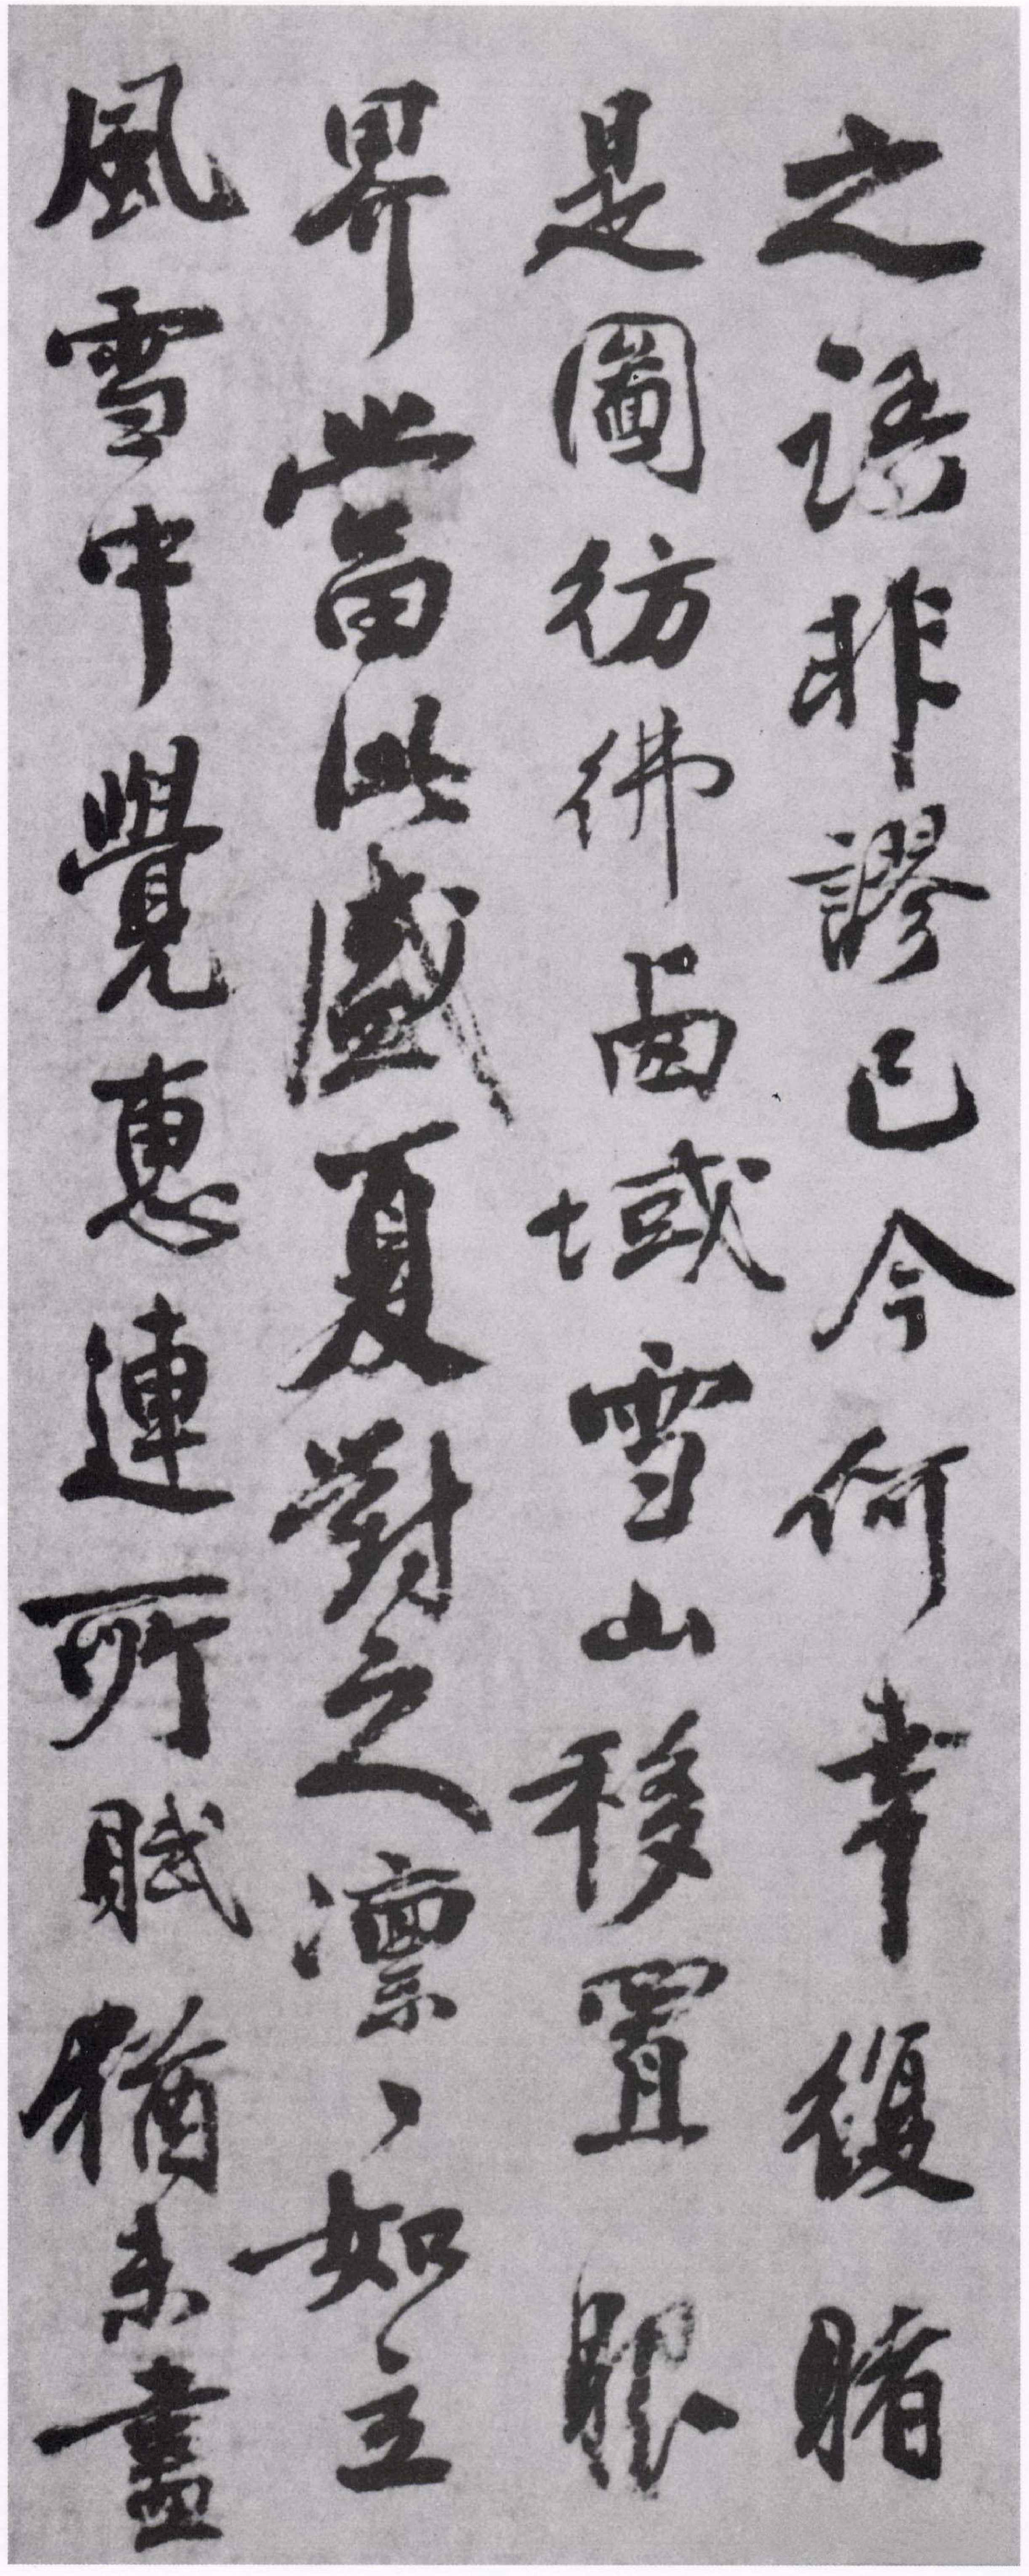 之語非謬已今何幸復睹
是圖彷彿鹵域雪山移置眼
界當此盛夏對之凛〻如立
風雪中覺惠連所賦猶未盡